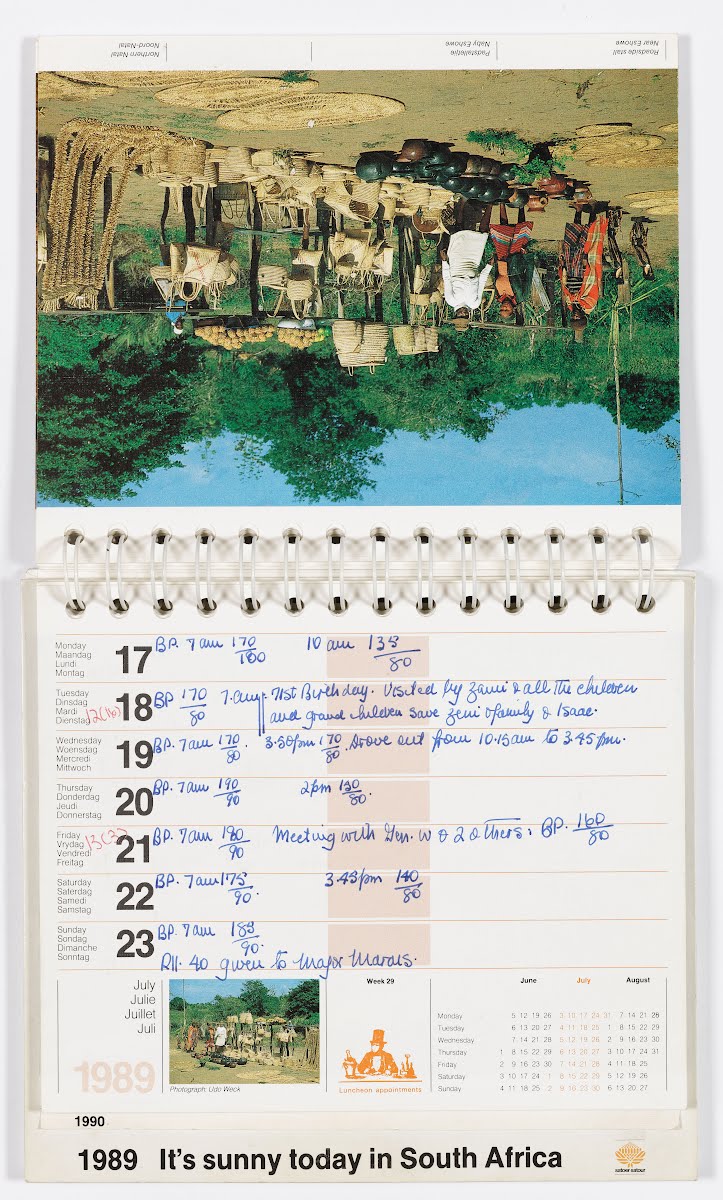 Northern Natal
Noord-Natal
Padstalletjie
Naby Eshowe
Roadside stall
Near Eshowe
Monday
Maandag
Lundi
Montag
17
BP. 7am 170/100 10am 135/80
Tuesday
Dinsdag
Mardi
Dienstag
12(16)
18
BP 170/80 7.am 71st Birthday. Visited by Zami & all the children
and grand children save Zeni & family & Isaac.
Wednesday
Woensdag
Mercredi
Mittwoch
19
BP. 7am 170/80. 3.50pm 170/80. Drove out from 10.15am to 3.45pm.
Thursday
Donderdag
Jeudi
Donnerstag
20
BP. 7am 190/90 2pm 130/80.
Friday
Vrydag
Vendredi
Freitag
21
BP. 7am 180/90 Meeting with Gen. W & 2 others: BP. 160/80
Saturday
Saterdag
Samedi
Samstag
22
BP. 7am 175/90. 3.45pm 140/80
Sunday
Sondag
Dimanche
Sonntag
23
BP 7am 185/90.
R11. 40 given to Major Marais.
July
Julie
Juillet
Juli
1989
Photograph: Udo Weck
Luncheon appointments
Week 29
June July August
Monday 5 12 19 26 3 10 17 24 31 7 14 21 28
Tuesday 6 13 20 27 4 11 18 25 1 8 15 22 29
Wednesday 7 14 21 28 5 12 19 26 2 9 16 23 30
Thursday 1 8 15 22 29 6 13 20 27 3 10 17 24 31
Friday 2 9 16 23 30 7 14 21 28 4 11 18 25
Saturday 3 10 17 24 1 8 15 22 29 5 12 19 26
Sunday 4 11 18 25 2 9 16 23 30 6 13 20 27
1990
1989 It's sunny today in South Africa
satoer satour